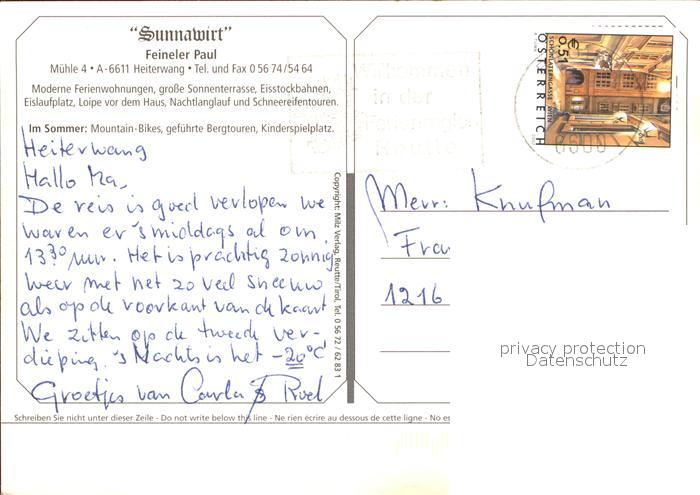 "Sunnawirt"
Feineler Paul
Mühle 4 • A-6611 Heiterwang • Tel. und Fax 0 56 74/54 64
Moderne Ferienwohnungen, große Sonnenterrasse, Eisstockbahnen,
Eislaufplatz, Loipe vor dem Haus, Nachtlanglauf und Schneereifentouren.
Im Sommer: Mountain-Bikes, geführte Bergtouren, Kinderspielplatz.
Heiterwang
Hallo Ma,
De reis is goed verlopen we
waren er 's middags al om
13.30 uur. Het is prachtig zonnig
weer met net zo veel sneeuw
als op de voorkant van de kaart
We zitten op de tweede ver-
dieping. 's Nachts is het -20°C
Groetjes van Carla & Roel
Schreiben Sie nicht unter dieser Zeile - Do not write below this line - Ne rien écrire au dessous de cette ligne - No es
Copyright: Milz Verlag, Reutte/Tirol, Tel. 0 56 72 / 62 83 1
Willkommen
in der
Ferienregion
Reutte
€ 0,51
SCHÖNLATERNGASSE, WIEN
ÖSTERREICH
6600
Mevr: Knufman
Fra
1216
privacy protection
Datenschutz